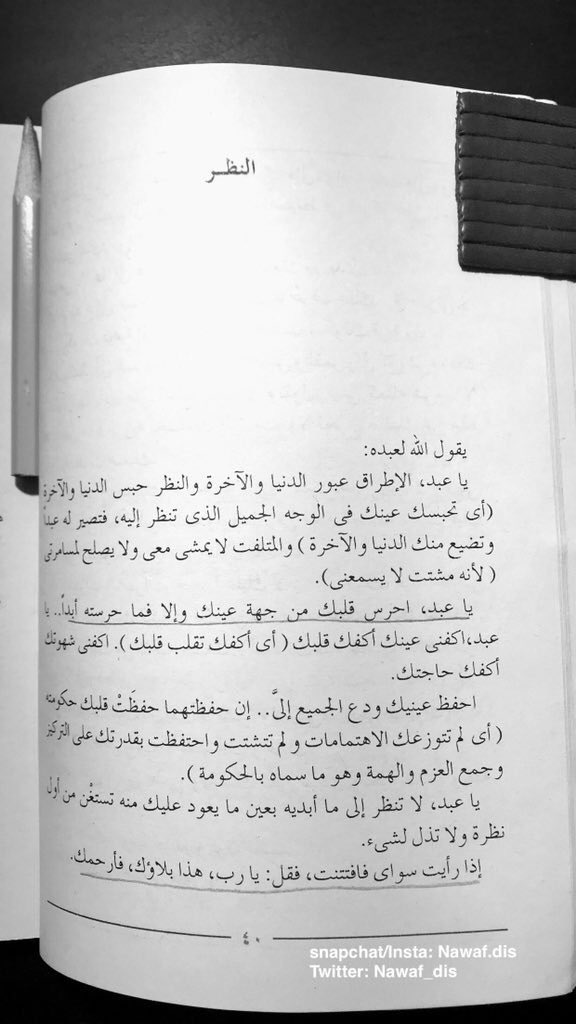 النظـر
يقول الله لعبده:
يا عبد، الإطراق عبور الدنيا والآخرة والنظر حبس الدنيا والآخرة
(أى تحبسك عينك فى الوجه الجميل الذى تنظر إليه، فتصير له عبداً
وتضيع منك الدنيا والآخرة ) والمتلفت لا يمشى معى ولا يصلح لمسامرتى
( لأنه مشتت لا يسمعنى).
يا عبد، احرس قلبك من جهة عينك وإلا فما حرسته أبداً.. يا
عبد،اكفنى عينك أكفك قلبك ( أى أكفك تقلب قلبك ). اكفنى شهوتك
أكفك حاجتك.
احفظ عينيك ودع الجميع إلىَّ.. إن حفظتهما حفظَتْ قلبك حكومته
( أى لم تتوزعك الاهتمامات و لم تتشتت واحتفظت بقدرتك على التركيز
وجمع العزم والهمة وهو ما سماه بالحكومة ).
يا عبد، لا تنظر إلى ما أبديه بعين ما يعود عليك منه تستغْن من أول
نظرة ولا تذل لشىء.
إذا رأيت سواى فافتتنت، فقل: يا رب، هذا بلاؤك، فأرحمك.
٤٠
snapchat/Insta: Nawaf.dis
Twitter: Nawaf_dis